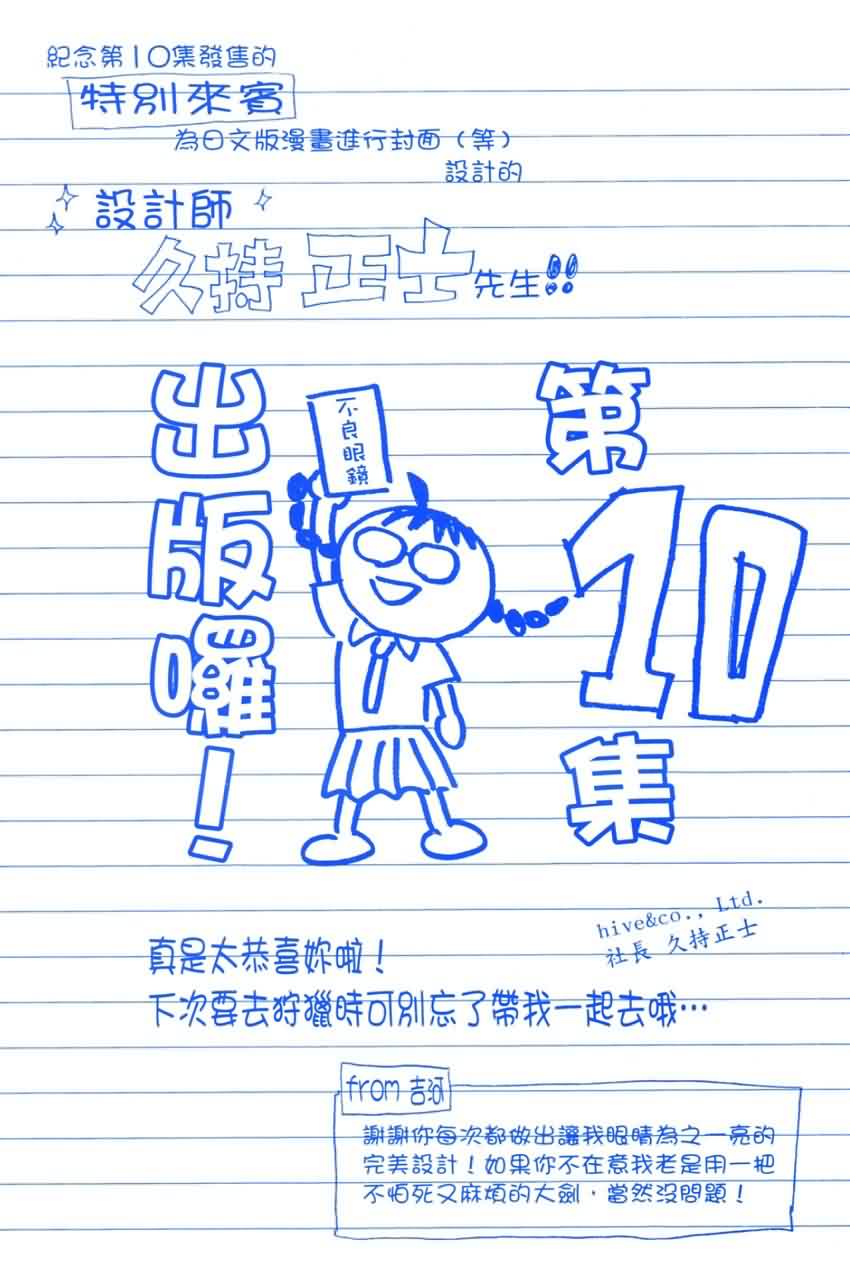 紀念第10集發售的
特別來賓
為日文版漫畫進行封面（等）
設計的
設計師
久持 正士先生!!
第10集
出版囉！
不良眼鏡
hive&co., Ltd.
社長 久持正士
真是太恭喜妳啦！
下次要去狩獵時可別忘了帶我一起去哦…
from 吉河
謝謝你每次都做出讓我眼睛為之一亮的
完美設計！如果你不在意我老是用一把
不怕死又麻煩的大劍，當然沒問題！